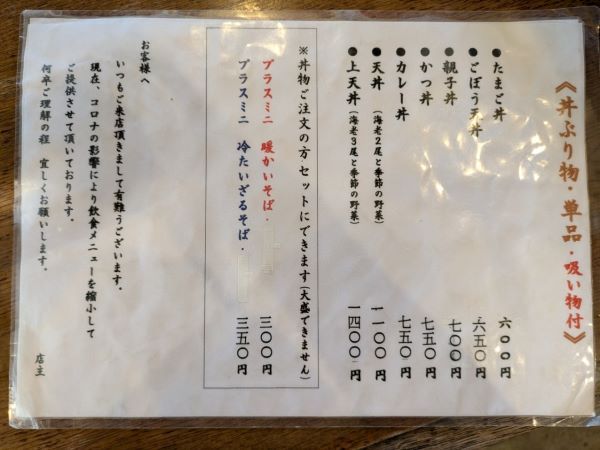 《丼ぶり物・単品・吸い物付》
●たまご丼 六〇〇円
●ごぼう天丼 六五〇円
●親子丼 七〇〇円
●かつ丼 七五〇円
●カレー丼 七五〇円
●天丼(海老2尾と季節の野菜) 一一〇〇円
●上天丼(海老3尾と季節の野菜) 一四〇〇円
※丼物ご注文の方セットにできます(大盛できません)
プラスミニ 暖かいそば・ 三〇〇円
プラスミニ 冷たいざるそば・ 三五〇円
お客様へ
いつもご来店頂きまして有難うございます。
現在、コロナの影響により飲食メニューを縮小して
ご提供させて頂いております。
何卒ご理解の程 宜しくお願いします。
店主